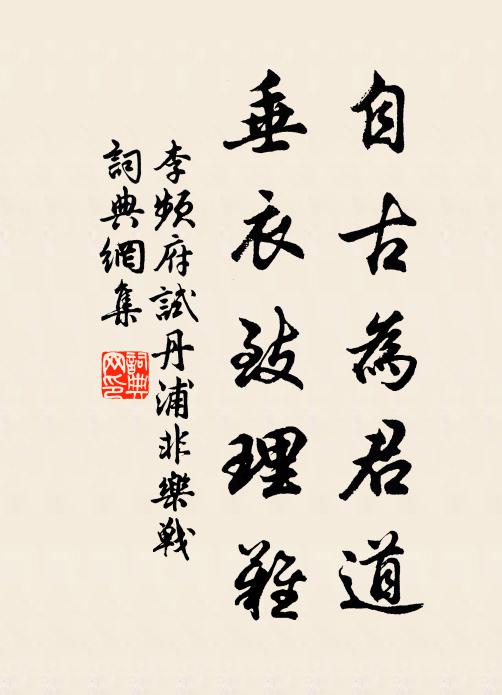 自古為君道
垂衣致理難
李頻府試丹浦非樂戰
詞典網集
詞典網印